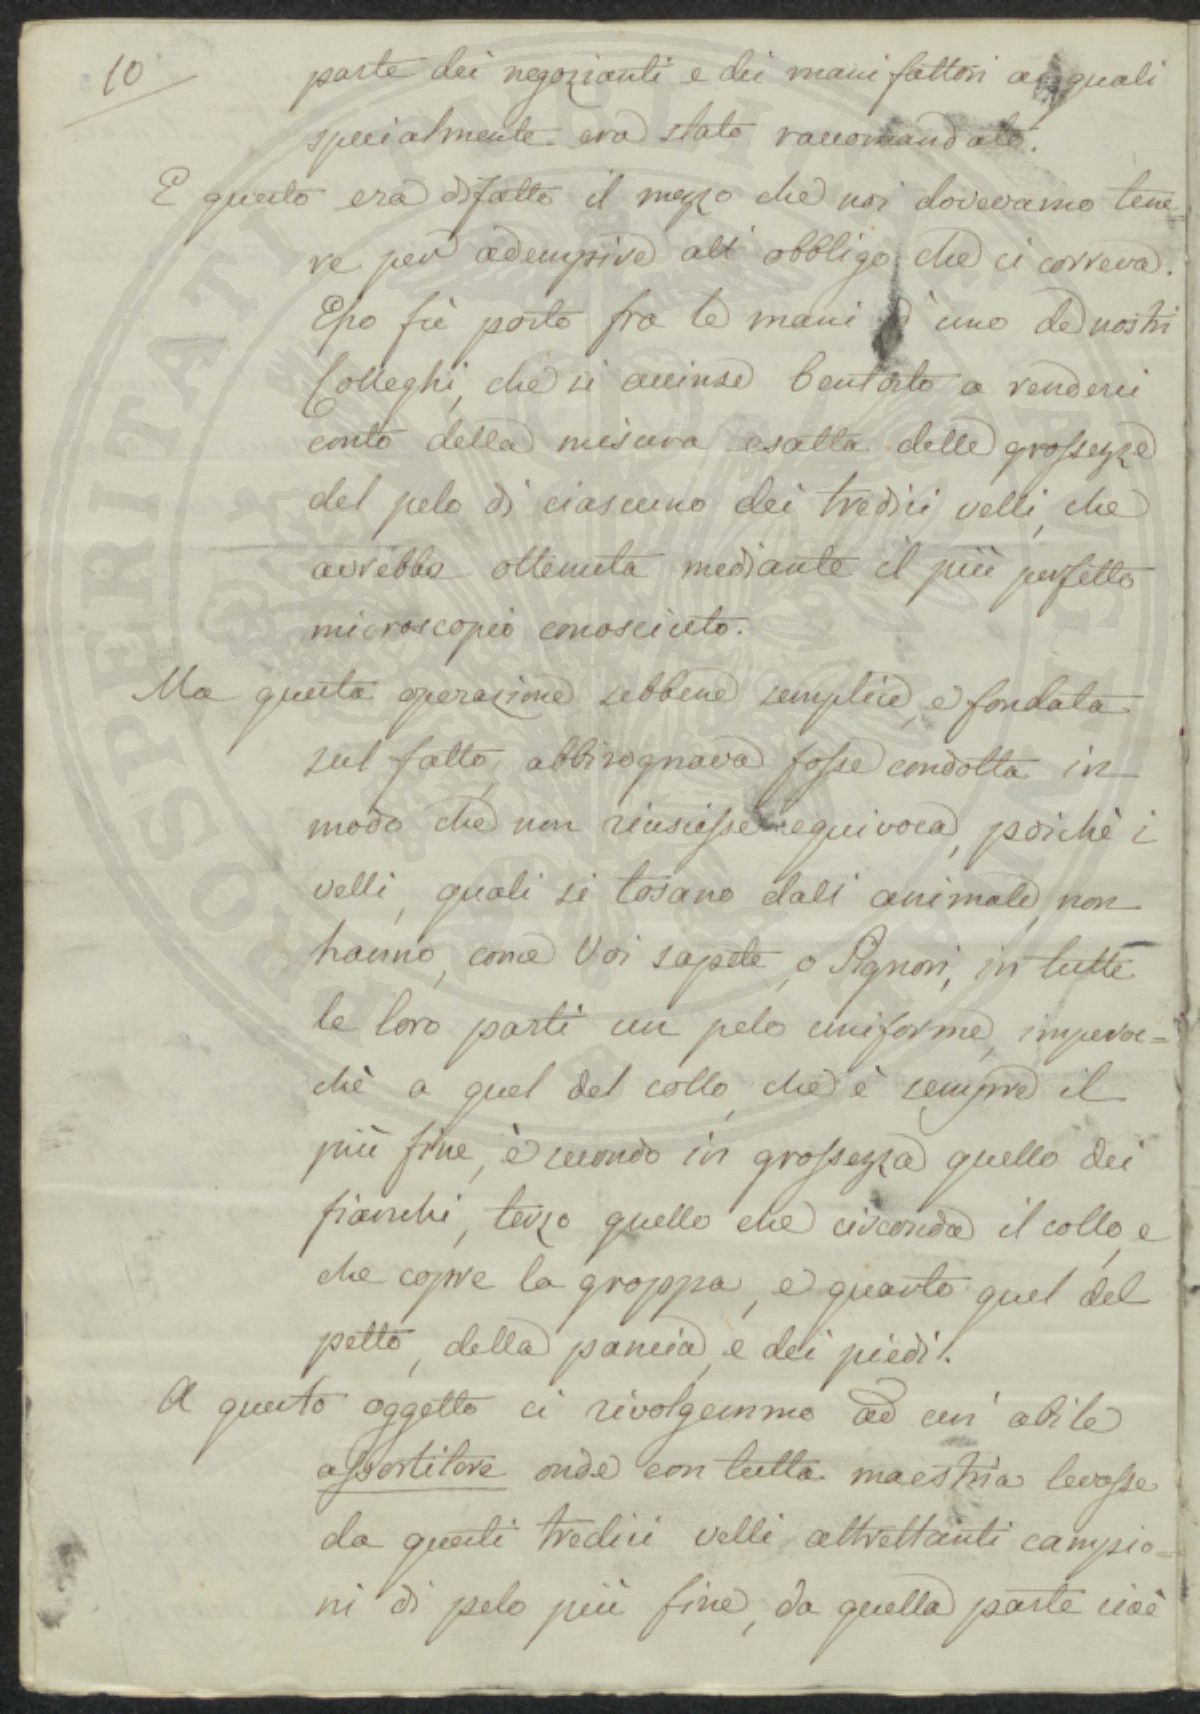 10
parte dei negozianti e dei manifattori ai quali
specialmente era stato raccomandato.
E questo era difatto il mezzo che noi dovevamo tene-
re per adempire all' obbligo che ci correva.
Esso fù posto fra le mani d' uno de nostri
Colleghi, che si accinse bentosto a renderci
conto della misura esatta delle grossezze
del pelo di ciascuno dei tredici velli, che
avrebbe ottenuta mediante il più perfetto
microscopio conosciuto.
Ma questa operazione sebbene semplice, e fondata
sul fatto, abbisognava fosse condotta in
modo che non riuscisse equivoca, poichè i
velli, quali si tosano dall' animale, non
hanno, come Voi sapete, o Signori, in tutte
le loro parti un pelo uniforme, imperoc=
chè a quel del collo, che è sempre il
più fine, è secondo in grossezza quello dei
fianchi, terzo quello che circonda il collo, e
che copre la groppa, e quarto quel del
petto, della pancia, e dei piedi.
A questo oggetto ci rivolgemmo ad un' abile
assortitore onde con tutta maestria levasse
da questi tredici velli altrettanti campio=
ni di pelo più fine, da quella parte cioè
PROSPERITATI PUBLICAE AUGENDAE